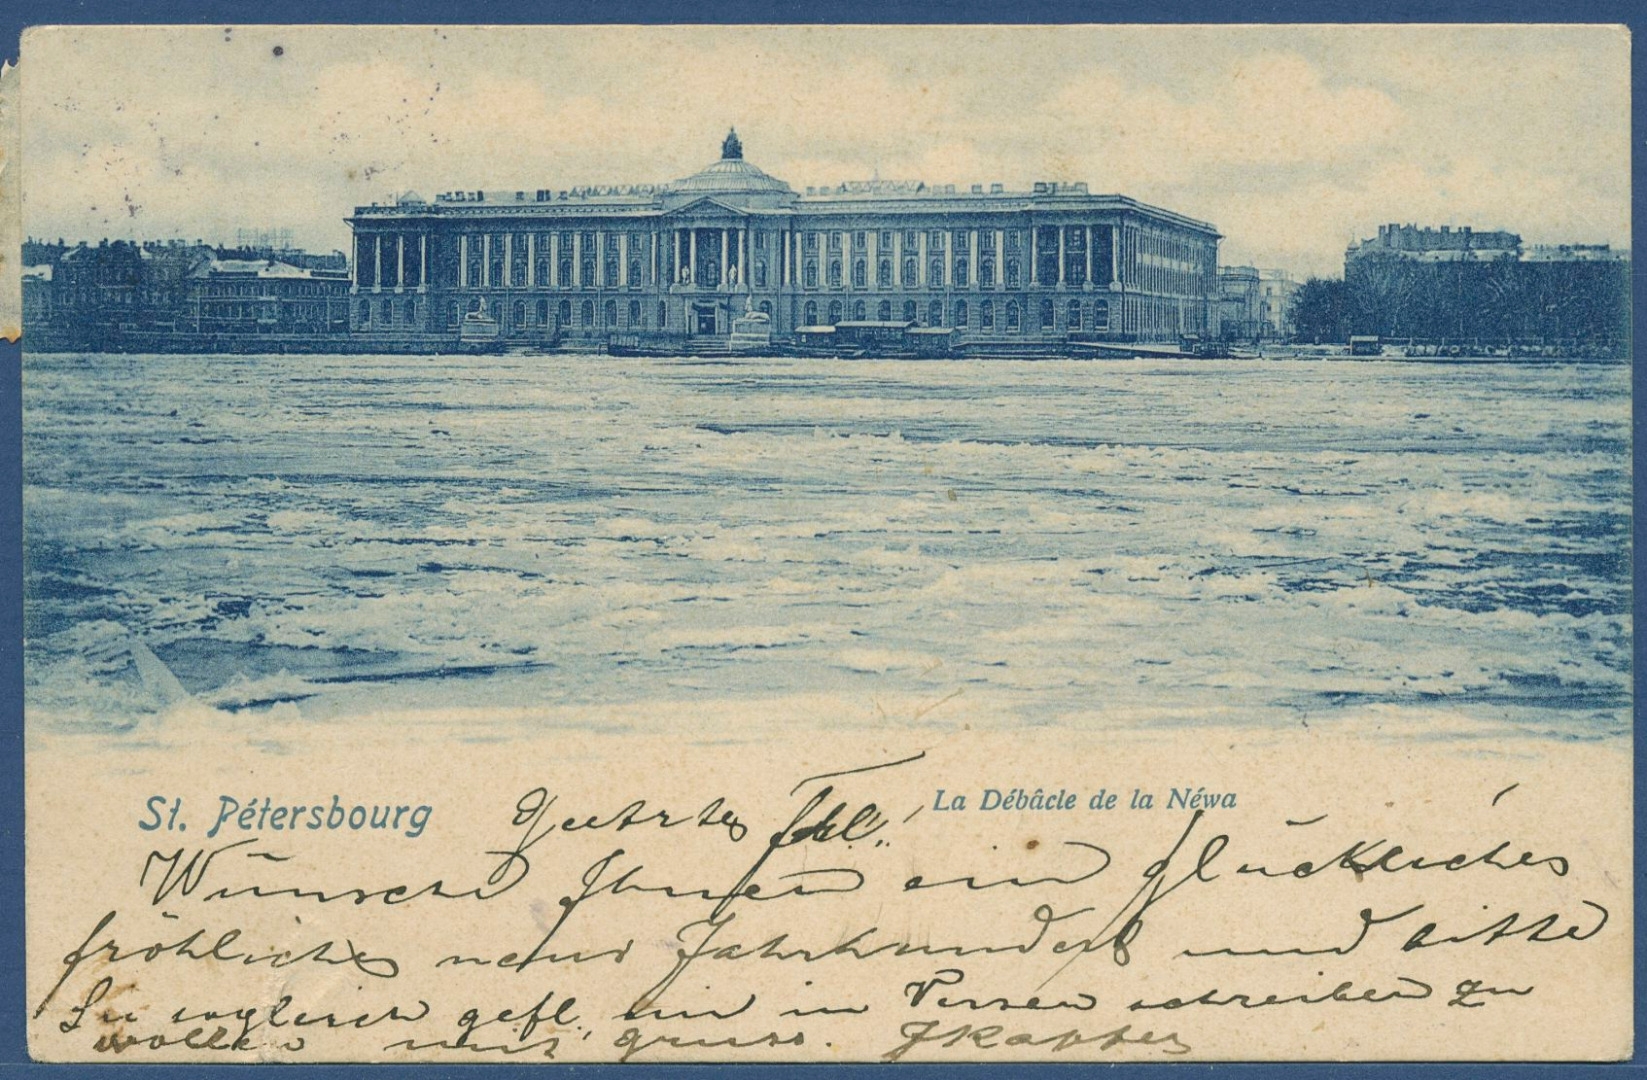 St. Pétersbourg
La Débâcle de la Néwa
Geehrtes Frl.!
Wünsche Ihnen ein glückliches
fröhliches neues Jahrhundert und bitte
Sie zugleich gefl. mir in Versen schreiben zu
wollen mit gruss.